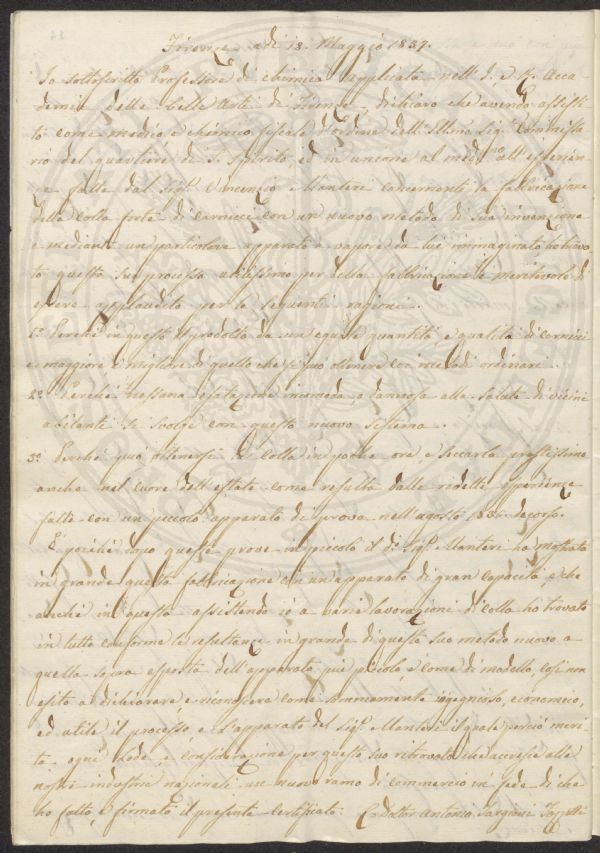 Firenze adi 13. Maggio 1837.
Io sottoscritto Professore di chimica applicata nell'I. e R. Acca
demia delle belle Arti di Firenze, dichiaro che avendo assisti
to come medico e chimico fiscale d'ordine dell'Illmo Sig. Commissa
rio del quartiere di S. Spirito, ed in unione al medmo all'esperien
ze fatte dal Sigr. Manteri concernenti la fabbricazione
della colla forte di carnicci con un nuovo metodo di sua invenzione
e mediante un particolare apparato a vapore da lui immaginato ho trova
to questo suo processo utilissimo per della fabbricazione e meritevole di
essere applaudito per le seguenti ragioni.
1o. Perché in questo il prodotto da un eguale quantità e qualità di carnicci
e maggiore e migliore di quello che si può ottenere coi metodi ordinari.
2o. Perché nessuna esalazione incomoda o dannosa alla salute di vicini
abitanti si svolge con questo nuovo sistema.
3o. Perché può ottenersi la Colla in poche ore e seccarla prestissimo
anche nel cuore dell'estate come resulta dalle ridette esperienze
fatte con un piccolo apparato di prova nell'agosto decorso.
E poiché dopo queste prove in piccolo il do. Sigr. Manteri ha mostrata
in grande questa fabbricazione con un'apparato di gran capacità e che
anche in questa assistendo io a varie lavorazioni di colla ho trovato
in tutto conforme le resultanze in grande di questo suo metodo nuovo a
quella sopra esposta dell'apparato più piccolo, e come di modello, così non
esito a dichiarare e riconoscere come sommamente ingegnoso, economico,
ed utile il processo, e l'apparato del Sigr. Manteri il quale perciò meri
ta ogni lode e considerazione per questo suo ritrovato che accresce alle
nostre industrie nazionali un nuovo ramo di commercio in fede di che
ho fatto, e firmato il presente certificato: Dottor Antonio Targioni Tozzetti